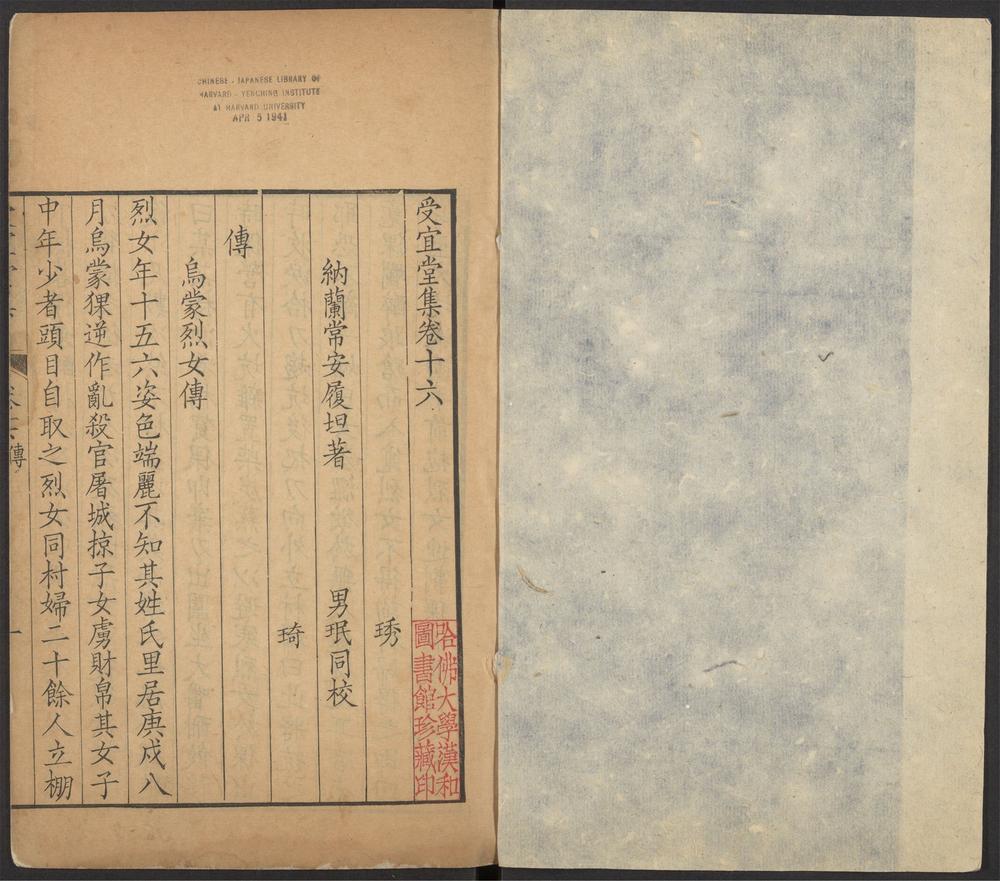 CHINESE - JAPANESE LIBRARY OF
HARVARD - YENCHING INSTITUTE
AT HARVARD UNIVERSITY
APR 5 1941
受宜堂集卷十六
哈佛大學漢和
圖書館珍藏印
琇
納蘭常安履坦著 男珉同校
琦
傳
烏蒙烈女傳
烈女年十五六姿色端麗不知其姓氏里居庚戍八
月烏蒙猓逆作亂殺官屠城掠子女虜財帛其女子
中年少者頭目自取之烈女同村婦二十餘人立棚
傳
一